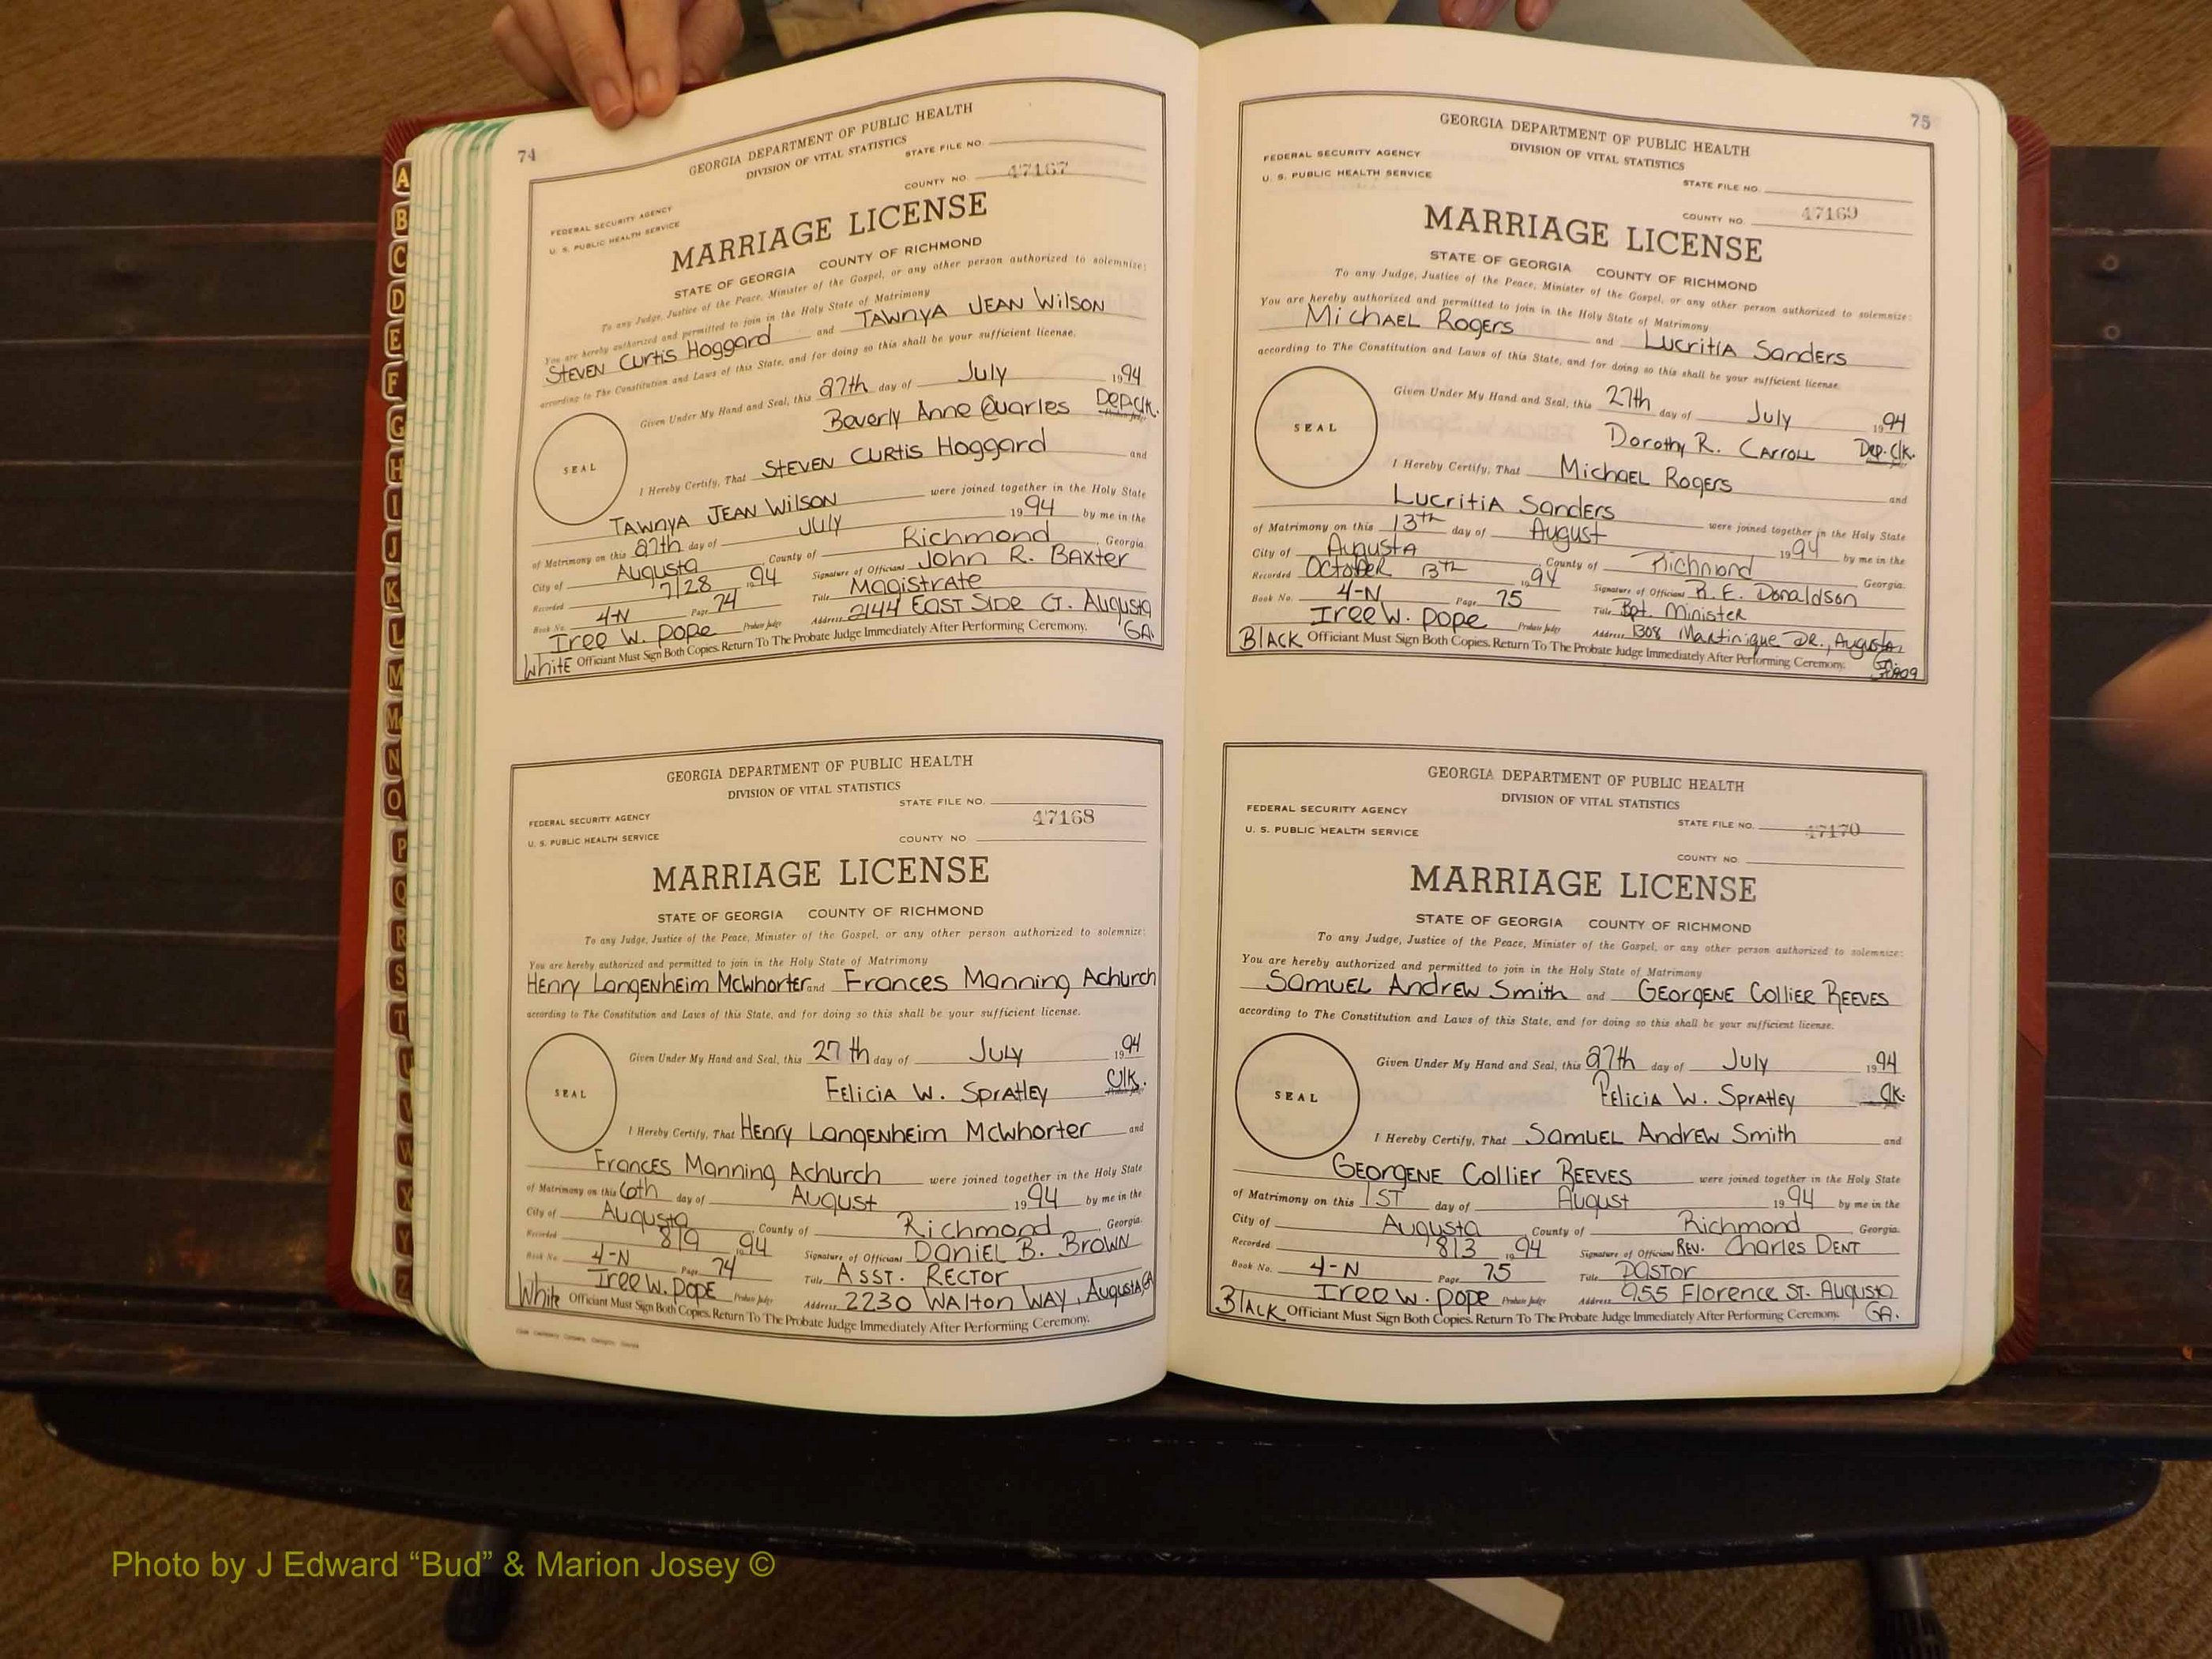 A
B
C
D
E
F
G
H
I
J
K
L
M
Mc
N
O
P
Q
R
S
T
U
V
W
X
Y
Z
74
GEORGIA DEPARTMENT OF PUBLIC HEALTH
DIVISION OF VITAL STATISTICS
STATE FILE NO.
COUNTY NO. 47167
FEDERAL SECURITY AGENCY
U. S. PUBLIC HEALTH SERVICE
MARRIAGE LICENSE
STATE OF GEORGIA COUNTY OF RICHMOND
To any Judge, Justice of the Peace, Minister of the Gospel, or any other person authorized to solemnize:
You are hereby authorized and permitted to join in the Holy State of Matrimony
STEVEN CURTIS Hoggard and TAWNYA JEAN WILSON
according to The Constitution and Laws of this State, and for doing so this shall be your sufficient license.
Given Under My Hand and Seal, this 27th day of July 1994
Beverly Anne Quarles Dep.Clk.
SEAL
I Hereby Certify, That STEVEN CURTIS Hoggard and
TAWNYA JEAN WILSON were joined together in the Holy State
of Matrimony on this 27th day of July 1994 by me in the
City of Augusta County of Richmond, Georgia.
Recorded 7/28 1994 Signature of Officiant John R. BAXTER
Book No. 4-N Page 74 Title MAGISTRATE
IREE W. POPE Probate Judge Address 2144 EAST SIDE CT. Augusta GA.
White Officiant Must Sign Both Copies. Return To The Probate Judge Immediately After Performing Ceremony.
GEORGIA DEPARTMENT OF PUBLIC HEALTH
DIVISION OF VITAL STATISTICS
STATE FILE NO.
47168
FEDERAL SECURITY AGENCY
U. S. PUBLIC HEALTH SERVICE
COUNTY NO
MARRIAGE LICENSE
STATE OF GEORGIA COUNTY OF RICHMOND
To any Judge, Justice of the Peace, Minister of the Gospel, or any other person authorized to solemnize:
You are hereby authorized and permitted to join in the Holy State of Matrimony
Henry Langenheim McWhorter and Frances Manning Achurch
according to The Constitution and Laws of this State, and for doing so this shall be your sufficient license.
Given Under My Hand and Seal, this 27th day of July 1994
Felicia W. Spratley Clk.
SEAL
I Hereby Certify, That Henry Langenheim McWhorter and
Frances Manning Achurch were joined together in the Holy State
of Matrimony on this 6th day of August 1994 by me in the
City of Augusta County of Richmond, Georgia.
Recorded 8/9 1994 Signature of Officiant DANIEL B. BROWN
Book No. 4-N Page 74 Title ASST. RECTOR
IREE W. POPE Probate Judge Address 2230 WALTON WAY, Augusta GA
White Officiant Must Sign Both Copies. Return To The Probate Judge Immediately After Performing Ceremony.
75
GEORGIA DEPARTMENT OF PUBLIC HEALTH
DIVISION OF VITAL STATISTICS
FEDERAL SECURITY AGENCY
U. S. PUBLIC HEALTH SERVICE
STATE FILE NO.
COUNTY NO. 47169
MARRIAGE LICENSE
STATE OF GEORGIA COUNTY OF RICHMOND
To any Judge, Justice of the Peace, Minister of the Gospel, or any other person authorized to solemnize:
You are hereby authorized and permitted to join in the Holy State of Matrimony
Michael Rogers and Lucritia Sanders
according to The Constitution and Laws of this State, and for doing so this shall be your sufficient license.
Given Under My Hand and Seal, this 27th day of July 1994
Dorothy R. Carroll Dep. Clk.
SEAL
I Hereby Certify, That Michael Rogers and
Lucritia Sanders were joined together in the Holy State
of Matrimony on this 13th day of August 1994 by me in the
City of Augusta County of Richmond Georgia.
Recorded October 13th 1994 Signature of Officiant R. E. Donaldson
Book No. 4-N Page 75 Title Bpt. Minister
IREE W. POPE Probate Judge Address 1308 Martinique DR., Augusta, GA.
BLACK Officiant Must Sign Both Copies. Return To The Probate Judge Immediately After Performing Ceremony.
GEORGIA DEPARTMENT OF PUBLIC HEALTH
DIVISION OF VITAL STATISTICS
FEDERAL SECURITY AGENCY
U. S. PUBLIC HEALTH SERVICE
STATE FILE NO. 47170
COUNTY NO.
MARRIAGE LICENSE
STATE OF GEORGIA COUNTY OF RICHMOND
To any Judge, Justice of the Peace, Minister of the Gospel, or any other person authorized to solemnize:
You are hereby authorized and permitted to join in the Holy State of Matrimony
Samuel Andrew Smith and GEORGENE Collier REEVES
according to The Constitution and Laws of this State, and for doing so this shall be your sufficient license.
Given Under My Hand and Seal, this 27th day of July 1994
Felicia W. Spratley Clk.
SEAL
I Hereby Certify, That Samuel Andrew Smith and
GEORGENE Collier REEVES were joined together in the Holy State
of Matrimony on this 1ST day of August 1994 by me in the
City of Augusta County of Richmond, Georgia.
Recorded 8/3 1994 Signature of Officiant REV. Charles DENT
Book No. 4-N Page 75 Title Pastor
IREE W. POPE Probate Judge Address 955 Florence ST. Augusta GA.
BLACK Officiant Must Sign Both Copies. Return To The Probate Judge Immediately After Performing Ceremony.
Photo by J Edward “Bud” & Marion Josey ©